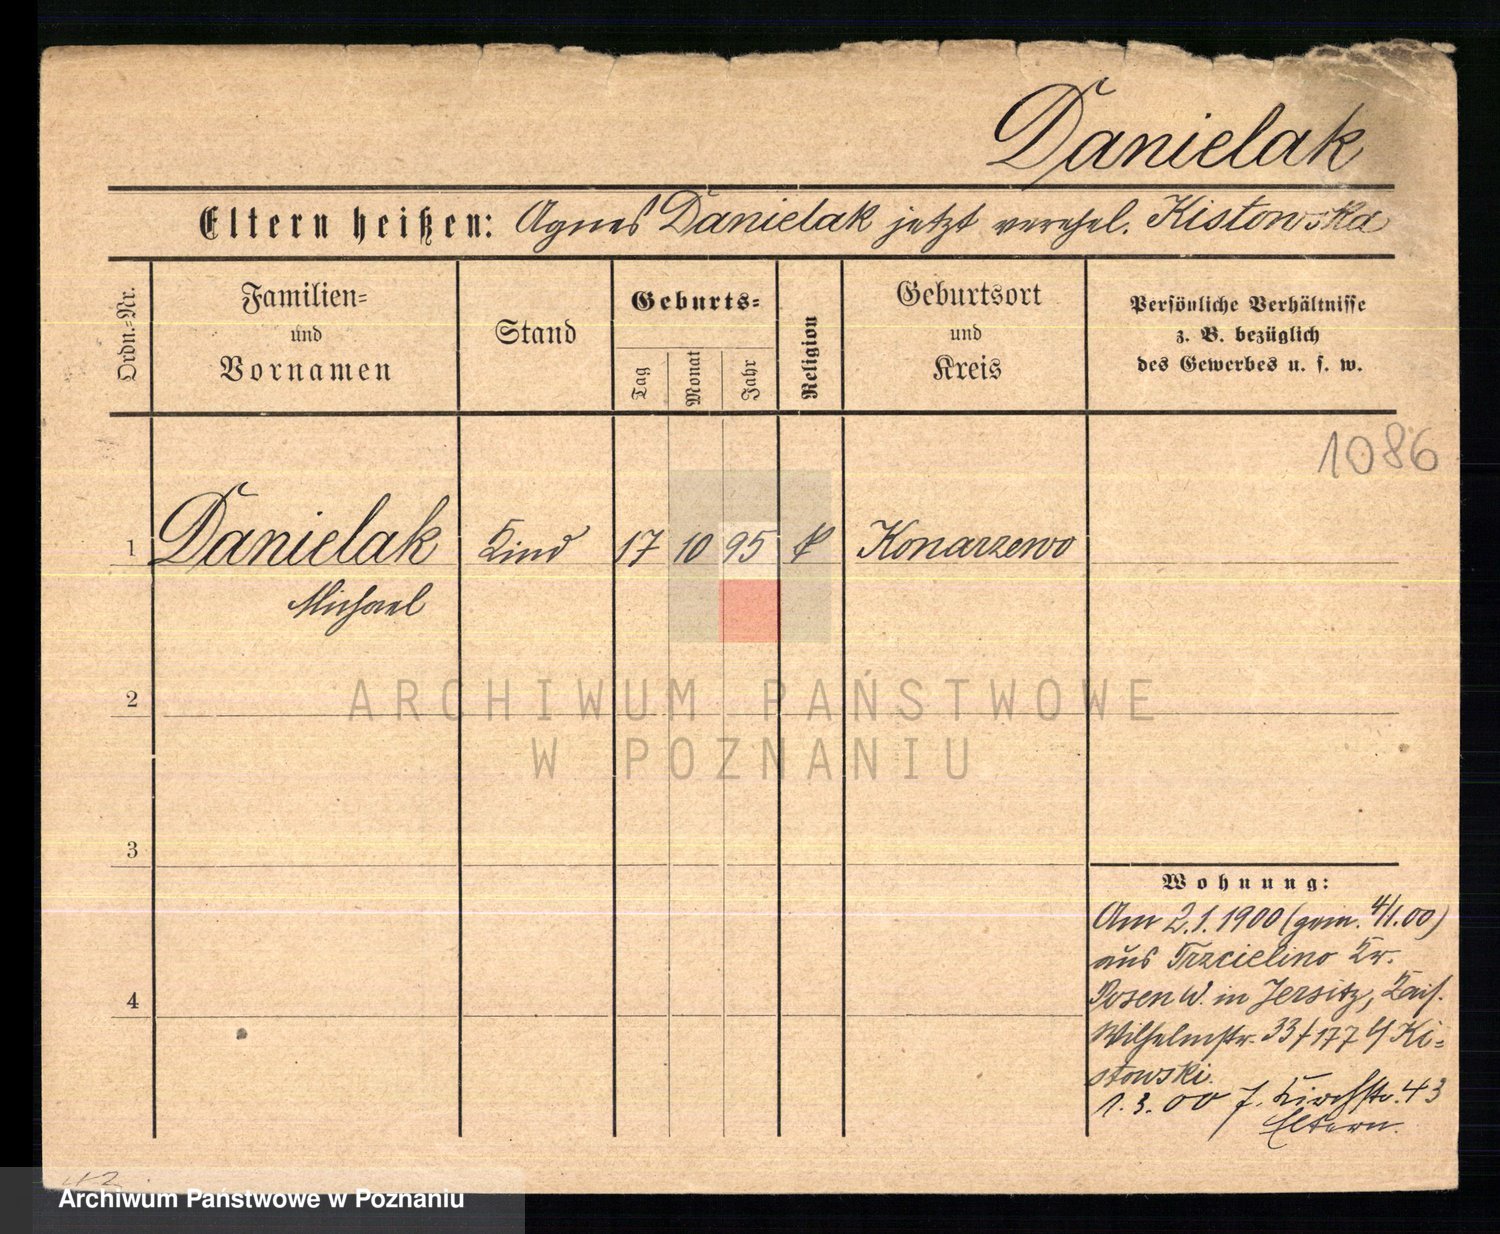 Danielak
Eltern heißen: Agnes Danielak jetzt verehel. Kistowska
Ordn.-Nr.
Familien-
und
Vornamen
Stand
Geburts-
Tag
Monat
Jahr
Religion
Geburtsort
und
Kreis
Persönliche Verhältnisse
z. B. bezüglich
des Gewerbes u. s. w.
1086
1 Danielak Kind 17 10 95 Konarzewo
Michael
2
ARCHIWUM PAŃSTWOWE
W POZNANIU
3
4
Wohnung:
Am 2.1.1900 (gem. 4/1.00)
aus Trzcielino Kr.
Posen W. in Jersitz, Kais.
Wilhelmstr. 33 / 177 b/ Ki-
stowski.
1.3.00 J. Kirchstr. 43
Eltern.
Archiwum Państwowe w Poznaniu